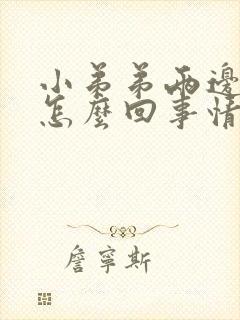 小弟弟兩邊
怎麼回事情
詹寧斯